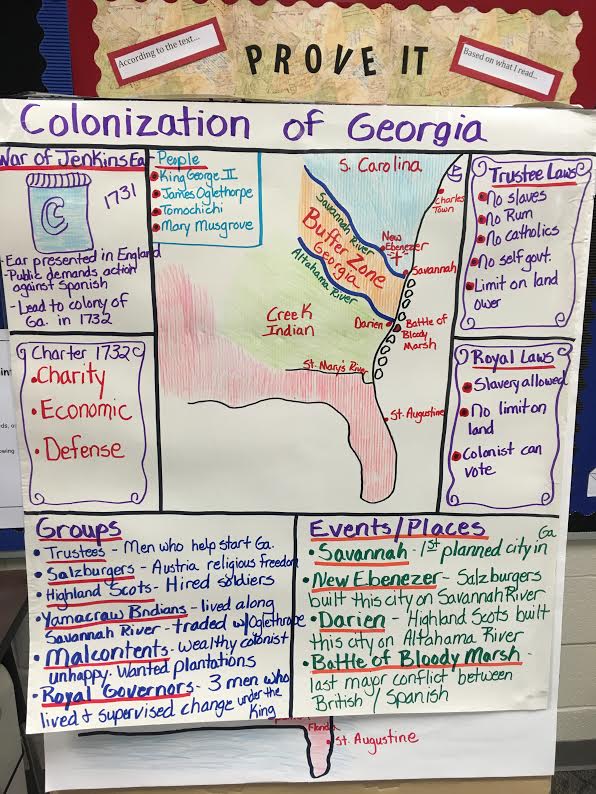 According to the text...
PROVE IT
Based on what I read...
Colonization of Georgia
War of Jenkins Ear
1731
C
- Ear presented in England
- Public demands action
against Spanish
- Lead to colony of
Ga. in 1732
People
• King George II
• James Oglethorpe
• Tomochichi
• Mary Musgrove
S. Carolina
Charles
Town
Savannah River
New
Ebenezer
Buffer Zone
Georgia
Savannah
Altahama River
Creek
Indian
Darien
Battle of
Bloody
Marsh
St. Mary's River
St. Augustine
Trustee Laws
• No slaves
• No Rum
• No catholics
• No self govt.
• Limit on land
ower
Charter 1732
• Charity
• Economic
• Defense
Royal Laws
• Slavery allowed
• No limit on
land
• Colonist can
vote
Groups
• Trustees - Men who help start Ga.
• Salzburgers - Austria religious freedom
• Highland Scots - Hired soldiers
• Yamacraw Bndians - lived along
Savannah River - traded w/Oglethrope
• Malcontents - wealthy colonist
unhappy. Wanted plantations
• Royal Governors - 3 men who
lived & supervised change under the
King
Events/Places
• Savannah - 1st planned city in Ga
• New Ebenezer - Salzburgers
built this city on Savannah River
• Darien - Highland Scots built
this city on Altahama River
• Battle of Bloody Marsh -
last major conflict between
British / Spanish
Florida
St. Augustine